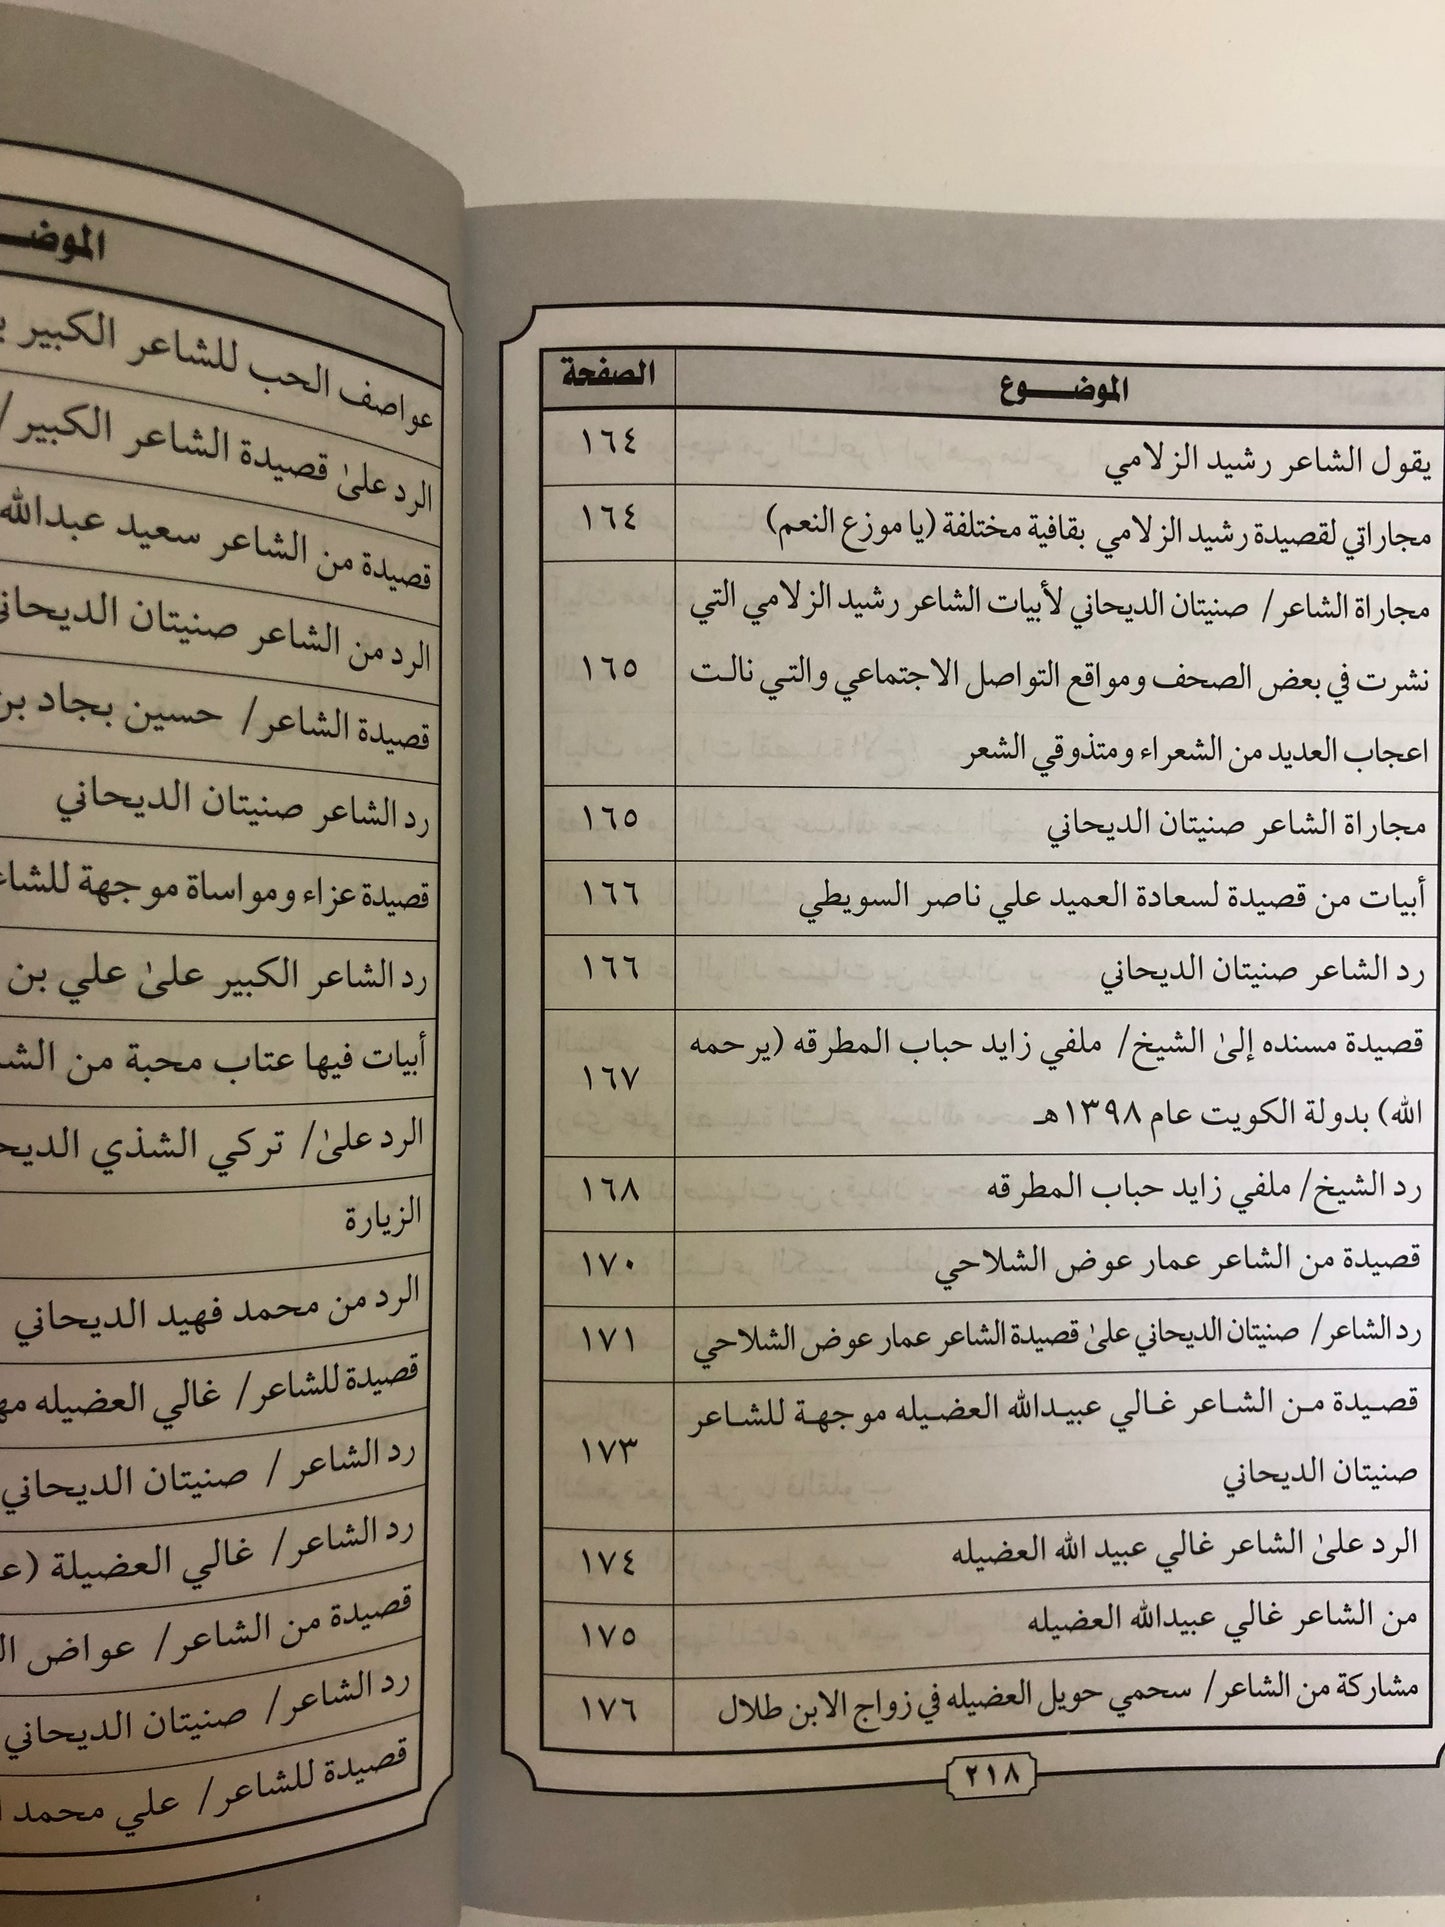 الموضـــوع الصفحة
يقول الشاعر رشيد الزلامي ١٦٤
مجاراتي لقصيدة رشيد الزلامي بقافية مختلفة (يا موزع النعم) ١٦٤
مجاراة الشاعر/ صنيتان الديحاني لأبيات الشاعر رشيد الزلامي التي
نشرت في بعض الصحف ومواقع التواصل الاجتماعي والتي نالت ١٦٥
اعجاب العديد من الشعراء ومتذوقي الشعر
مجاراة الشاعر صنيتان الديحاني ١٦٥
أبيات من قصيدة لسعادة العميد علي ناصر السويطي ١٦٦
رد الشاعر صنيتان الديحاني ١٦٦
قصيدة مسنده إلىٰ الشيخ/ ملفي زايد حباب المطرقه (يرحمه
الله) بدولة الكويت عام ١٣٩٨هـ ١٦٧
رد الشيخ/ ملفي زايد حباب المطرقه ١٦٨
قصيدة من الشاعر عمار عوض الشلاحي ١٧٠
رد الشاعر/ صنيتان الديحاني علىٰ قصيدة الشاعر عمار عوض الشلاحي ١٧١
قصيدة من الشاعر غالي عبيدالله العضيله موجهة للشاعر
صنيتان الديحاني ١٧٣
الرد علىٰ الشاعر غالي عبيد الله العضيله ١٧٤
من الشاعر غالي عبيدالله العضيله ١٧٥
مشاركة من الشاعر/ سحمي حويل العضيله في زواج الابن طلال ١٧٦
٢١٨
عواصف الحب للشاعر الكبير
الرد علىٰ قصيدة الشاعر الكبير/
قصيدة من الشاعر سعيد عبدالله
الرد من الشاعر صنيتان الديحاني
قصيدة الشاعر/ حسين بجاد بن
رد الشاعر صنيتان الديحاني
قصيدة عزاء ومواساة موجهة
رد الشاعر الكبير علىٰ علي بن
أبيات فيها عتاب محبة من
الرد علىٰ/ تركي الشذي
الزيارة
الرد من محمد فهيد الديحاني
قصيدة للشاعر/ غالي العضيله
رد الشاعر / صنيتان الديحاني
رد الشاعر/ غالي العضيلة
قصيدة من الشاعر/ عواض
رد الشاعر/ صنيتان الديحاني
قصيدة للشاعر/ علي محمد